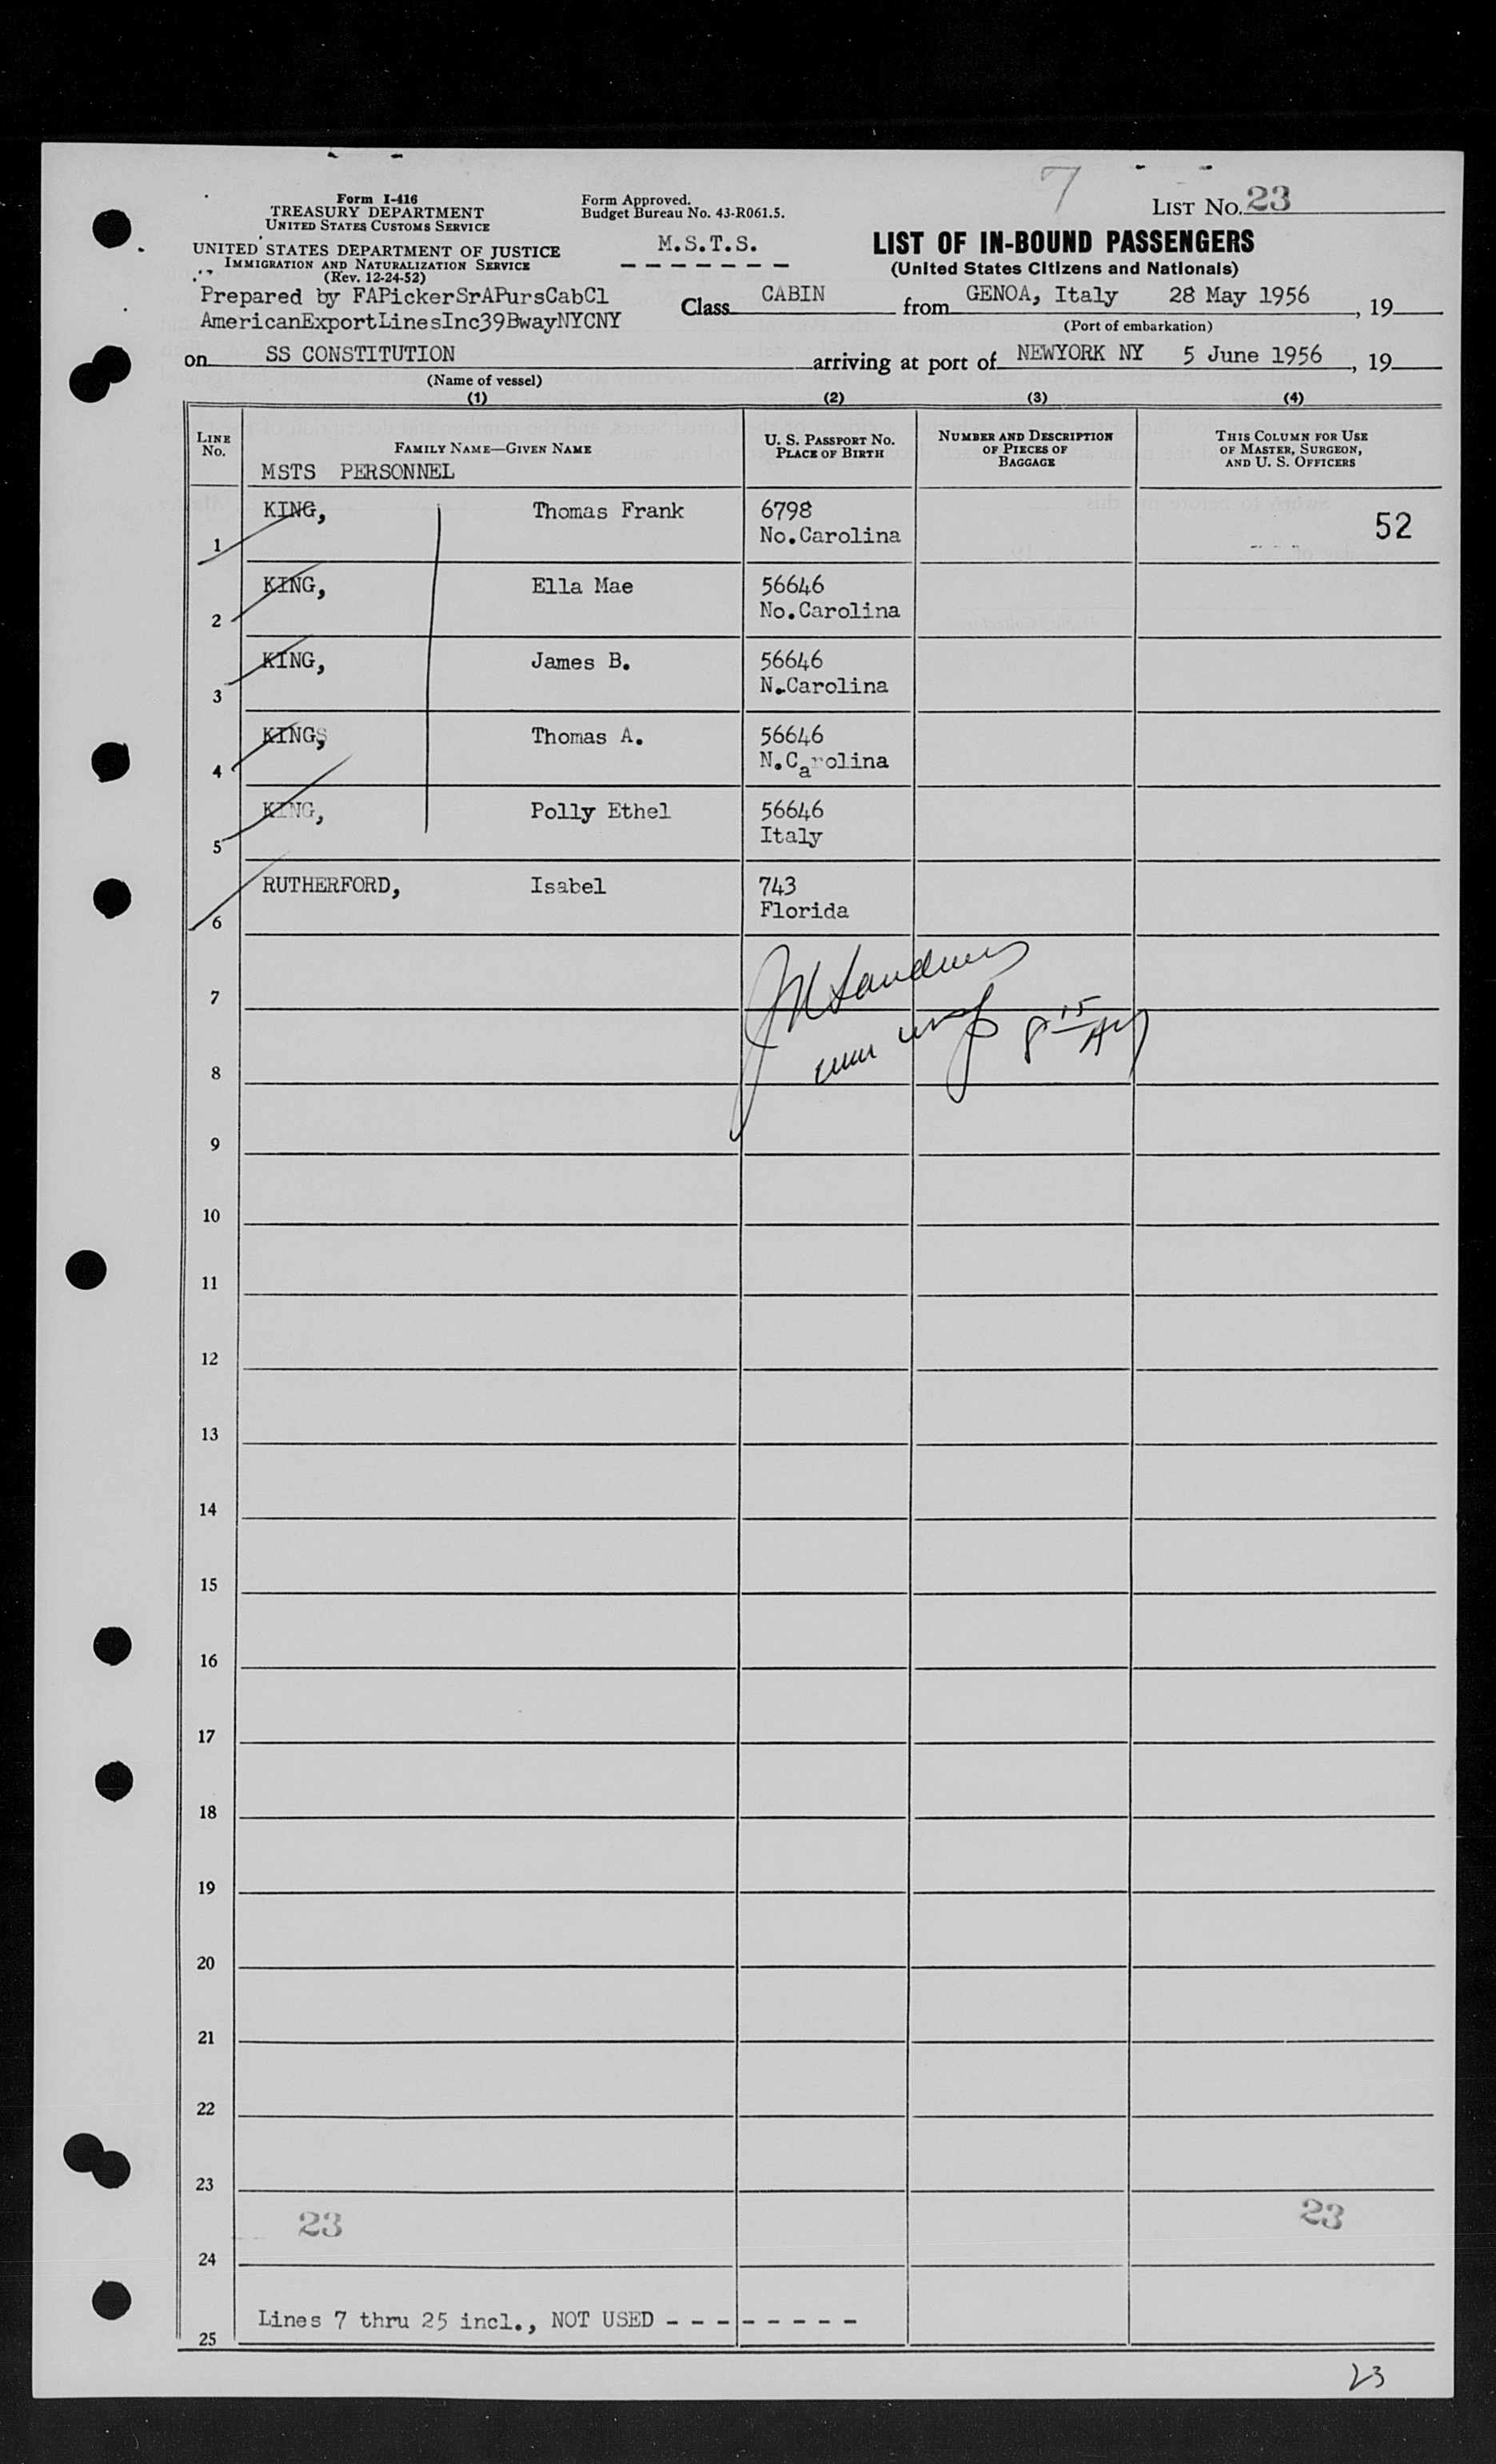 7
Form I-416
TREASURY DEPARTMENT
UNITED STATES CUSTOMS SERVICE
UNITED STATES DEPARTMENT OF JUSTICE
IMMIGRATION AND NATURALIZATION SERVICE
(Rev. 12-24-52)
Form Approved.
Budget Bureau No. 43-R061.5.
M.S.T.S.
LIST NO. 23
LIST OF IN-BOUND PASSENGERS
(United States Citizens and Nationals)
Prepared by FAPickerSrAPursCabCl
AmericanExportLinesInc39BwayNYCNY
Class CABIN from GENOA, Italy 28 May 1956, 19
(Port of embarkation)
on SS CONSTITUTION arriving at port of NEWYORK NY 5 June 1956, 19
(Name of vessel)
(1) (2) (3) (4)
LINE No.
FAMILY NAME—GIVEN NAME
U. S. PASSPORT NO.
PLACE OF BIRTH
NUMBER AND DESCRIPTION
OF PIECES OF
BAGGAGE
THIS COLUMN FOR USE
OF MASTER, SURGEON,
AND U. S. OFFICERS
MSTS PERSONNEL
1 KING, Thomas Frank 6798
No.Carolina
52
2 KING, Ella Mae 56646
No.Carolina
3 KING, James B. 56646
N.Carolina
4 KING, Thomas A. 56646
N.Carolina
5 KING, Polly Ethel 56646
Italy
6 RUTHERFORD, Isabel 743
Florida
7
8
9
10
11
12
13
14
15
16
17
18
19
20
21
22
23
23 23
24
Lines 7 thru 25 incl., NOT USED - - - - - - - -
25
23